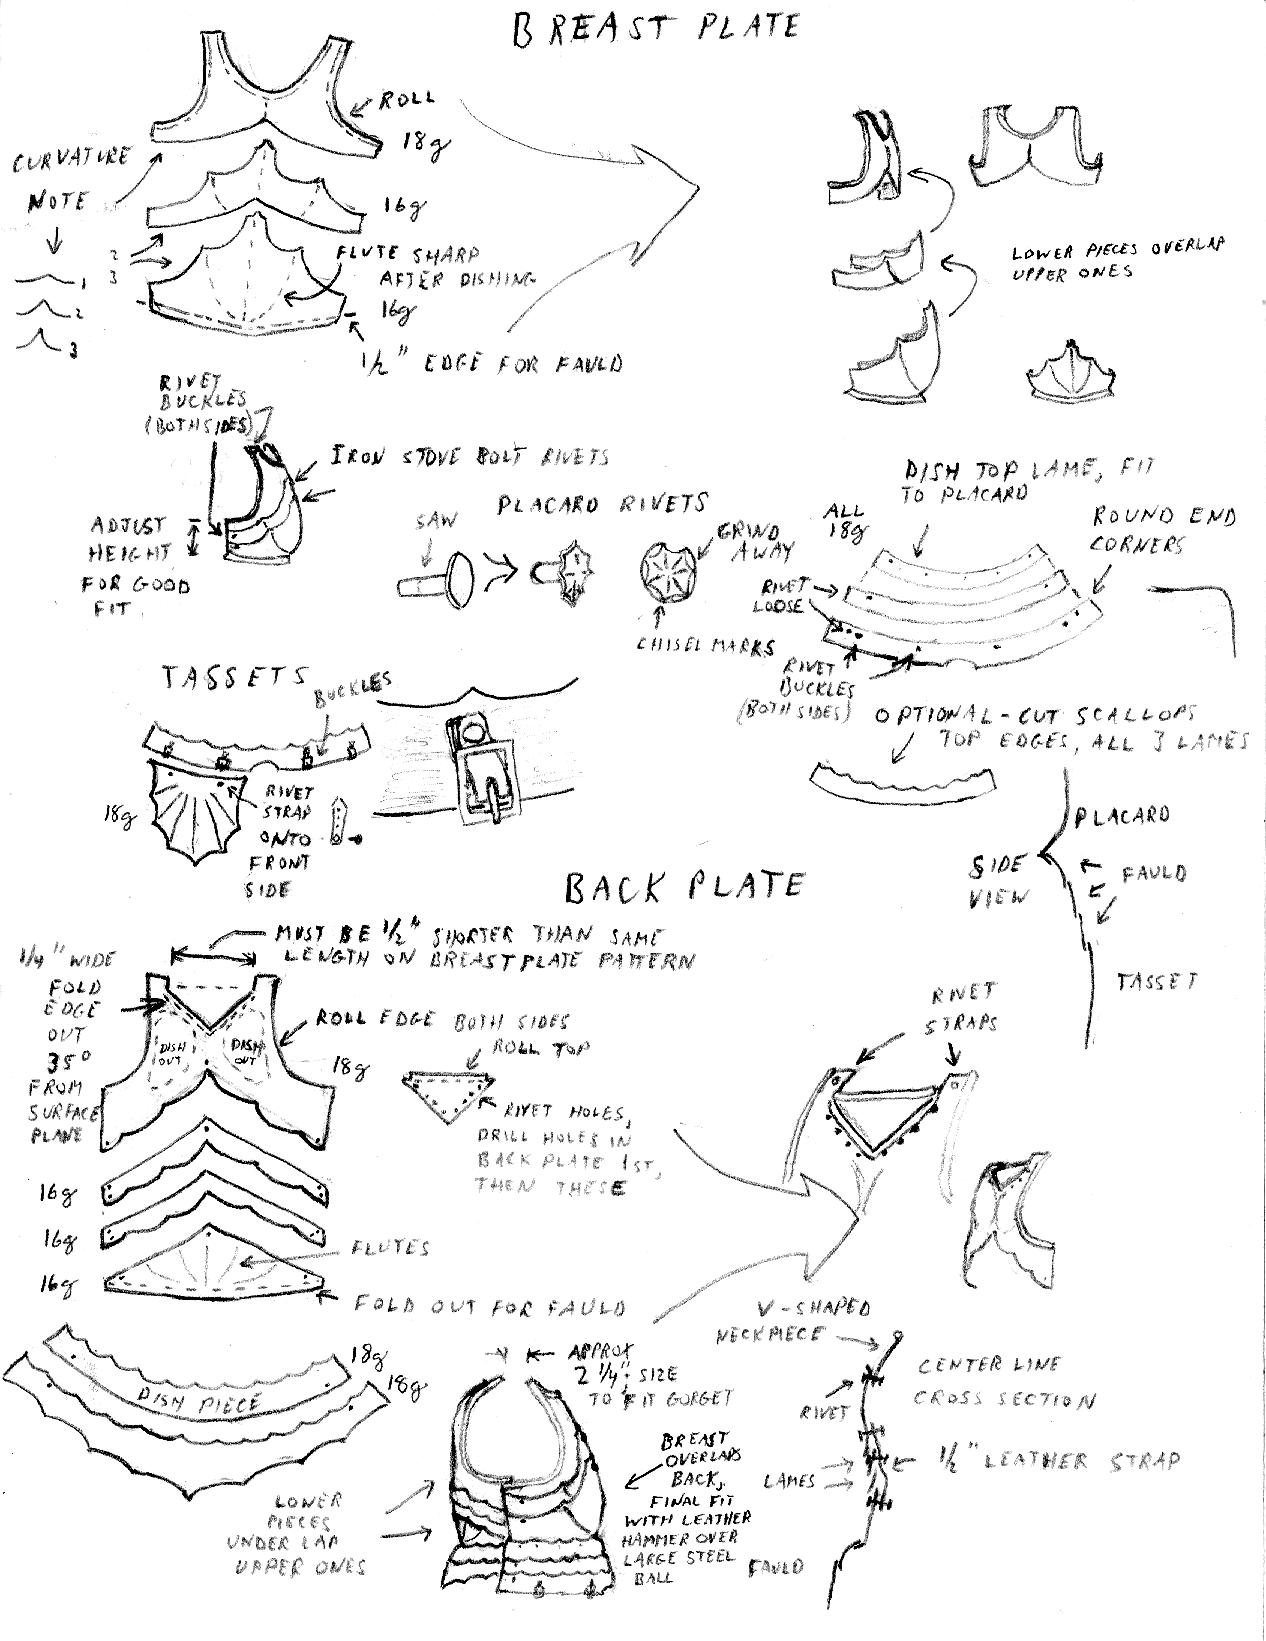 BREAST PLATE
ROLL
18g
CURVATURE
NOTE
16g
2
3
1
2
3
FLUTE SHARP
AFTER DISHING
16g
1/2" EDGE FOR FAULD
LOWER PIECES OVERLAP
UPPER ONES
RIVET
BUCKLES
(BOTH SIDES)
IRON STOVE BOLT RIVETS
ADJUST
HEIGHT
FOR GOOD
FIT
PLACARD RIVETS
SAW
GRIND
AWAY
CHISEL MARKS
DISH TOP LAME, FIT
TO PLACARD
ALL
18g
ROUND END
CORNERS
RIVET
LOOSE
RIVET
BUCKLES
(BOTH SIDES)
OPTIONAL-CUT SCALLOPS
TOP EDGES, ALL 3 LAMES
TASSETS
BUCKLES
18g
RIVET
STRAP
ONTO
FRONT
SIDE
PLACARD
SIDE
VIEW
FAULD
TASSET
BACK PLATE
MUST BE 1/2" SHORTER THAN SAME
LENGTH ON BREASTPLATE PATTERN
1/4" WIDE
FOLD
EDGE
OUT
35°
FROM
SURFACE
PLANE
DISH
OUT
DISH
OUT
ROLL EDGE BOTH SIDES
18g
ROLL TOP
RIVET HOLES,
DRILL HOLES IN
BACK PLATE 1ST,
THEN THESE
RIVET
STRAPS
16g
16g
16g
FLUTES
FOLD OUT FOR FAULD
18g
18g
DISH PIECE
APPROX
2 1/4": SIZE
TO FIT GORGET
LOWER
PIECES
UNDER LAP
UPPER ONES
BREAST
OVERLAPS
BACK,
FINAL FIT
WITH LEATHER
HAMMER OVER
LARGE STEEL
BALL
V-SHAPED
NECKPIECE
CENTER LINE
CROSS SECTION
RIVET
1/2" LEATHER STRAP
LAMES
FAULD